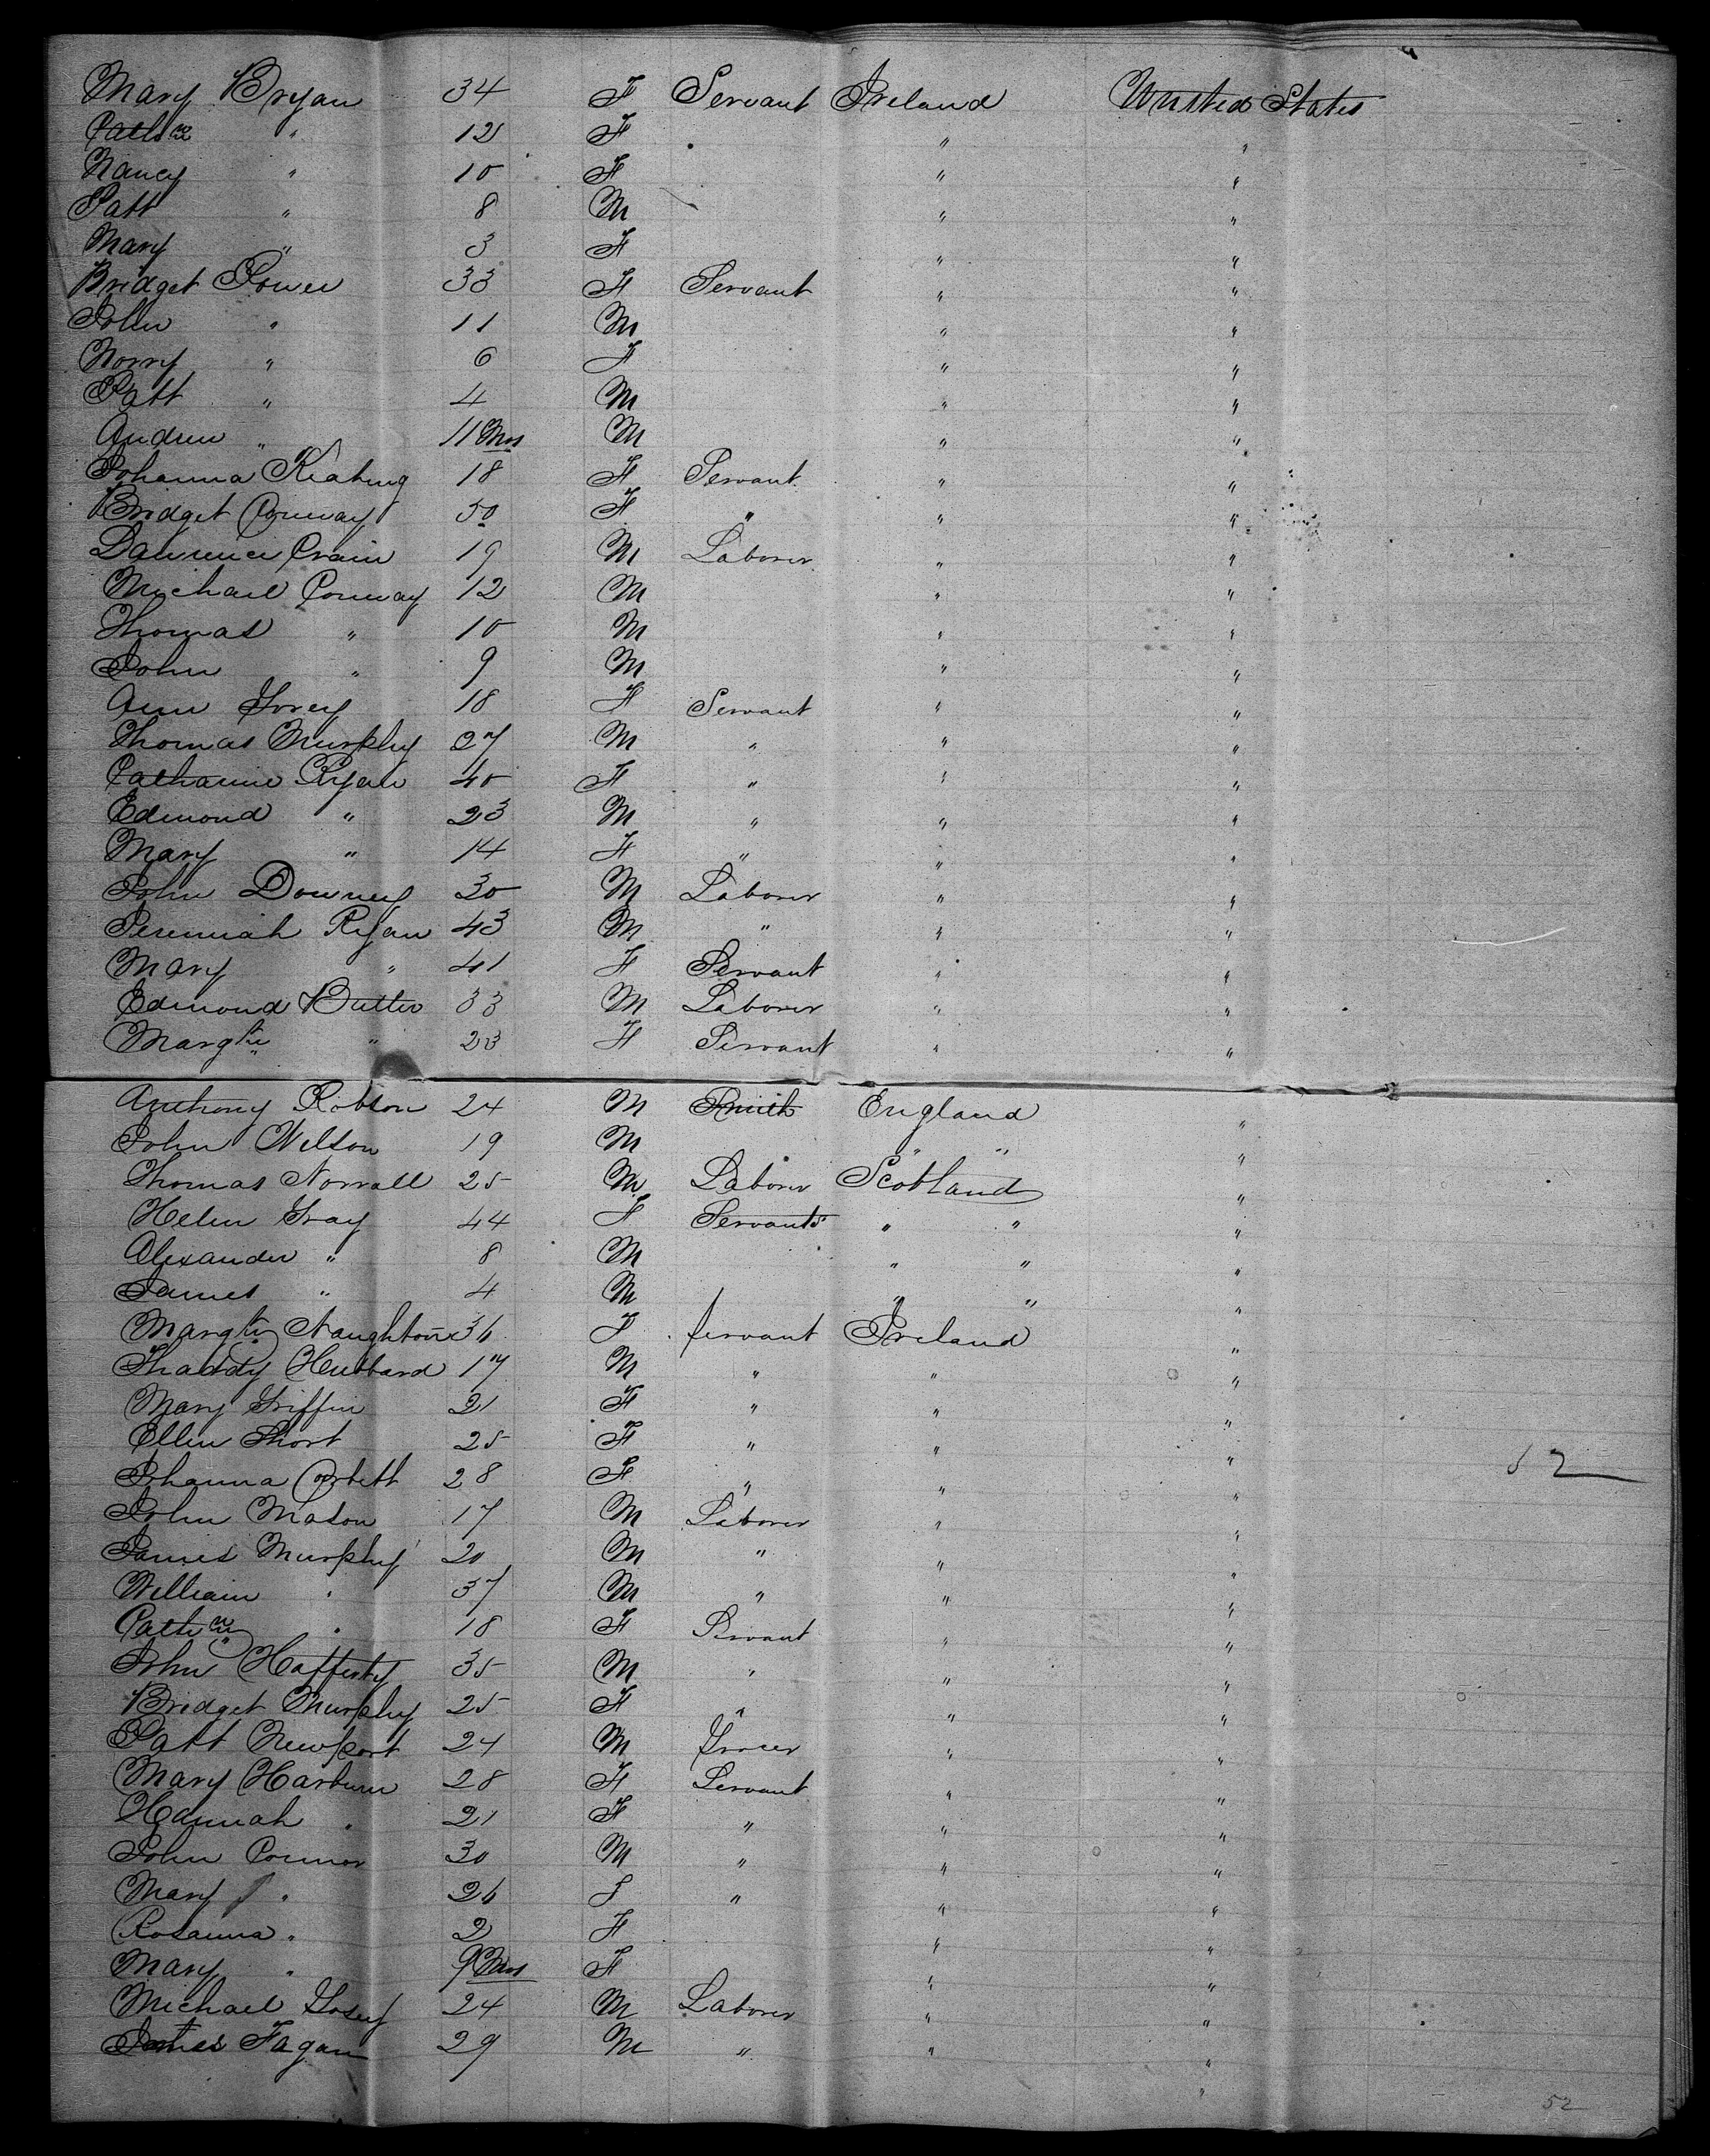 Mary Bryan 34 F Servant Ireland United States
Cathne " 12 F " "
Nancy " 10 F " "
Patt " 8 M " "
Mary " 3 F " "
Bridget Power 33 F Servant " "
John " 11 M " "
Norry " 6 F " "
Patt " 4 M " "
Andrew " 11 Mos M " "
Johanna Keating 18 F Servant " "
Bridget Conway 50 F " " "
Lawrence Crain 19 M Laborer " "
Michael Conway 12 M " "
Thomas " 10 M " "
John " 9 M " "
Ann 18 F Servant " "
Thomas Murphy 27 M " " "
Catharine Ryan 40 F " " "
Edmond " 23 M " " "
Mary " 14 F " " "
John Downey 30 M Laborer " "
Jeremiah Ryan 43 M " " "
Mary " 41 F Servant " "
Edmond Butler 33 M Laborer " "
Margte " 23 F Servant " "
Anthony Robson 24 M Smith England "
John Wilson 19 M " " "
Thomas Norvall 25 M Laborer Scotland "
Helen Gray 44 F Servant " " "
Alexander " 8 M " " "
James " 4 M " " "
Margte Naughton 36 F Servant Ireland "
Thaddy Hubbard 17 M " " "
Mary Griffin 21 F " " "
Ellen Short 25 F " " "
Johanna Corbett 28 F " " "
John Mason 17 M Laborer " "
James Murphy 20 M " " "
William " 37 M " " "
Cathne " 18 F Servant " "
John Hafferty 35 M " " "
Bridget Murphy 25 F " " "
Patt Newport 24 M Grocer " "
Mary Harburn 28 F Servant " "
Hannah " 21 F " " "
John Connor 30 M " " "
Mary " 26 F " " "
Rosanna " 2 F " "
Mary " 9 Mos F " "
Michael 24 M Laborer " "
James Fagan 29 M " " "
52